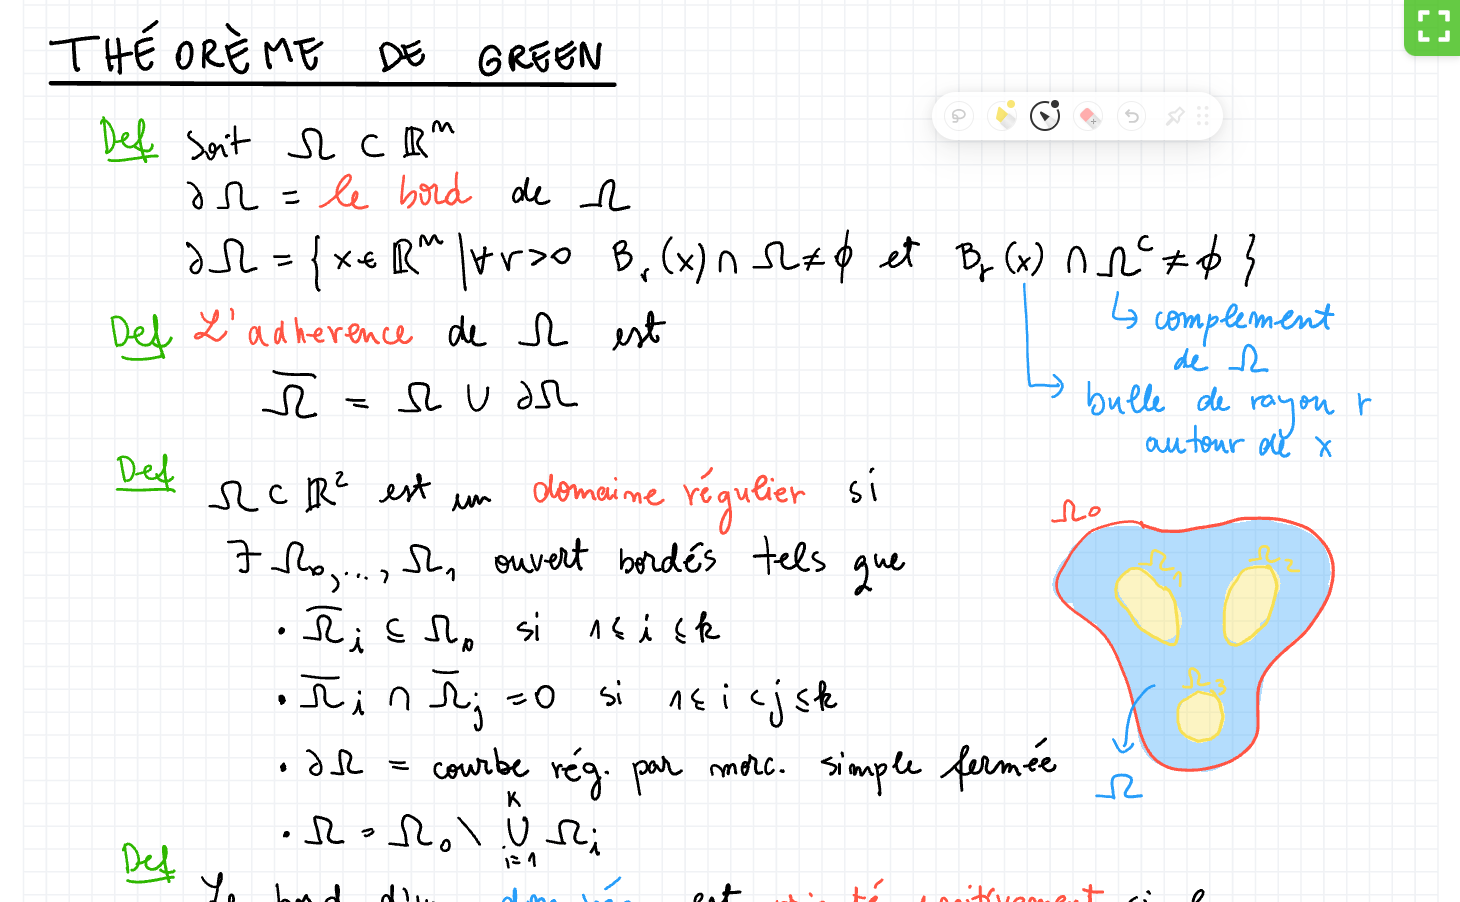 THÉORÈME DE GREEN
Def Soit Ω ⊂ ℝⁿ
∂Ω = le bord de Ω
∂Ω = { x ∈ ℝⁿ | ∀ r > 0 Bᵣ(x) ∩ Ω ≠ ϕ et Bᵣ(x) ∩ Ωᶜ ≠ ϕ }
↳ complement
de Ω
bulle de rayon r
autour de x
Def L'adherence de Ω est
Ω̅ = Ω ∪ ∂Ω
Def Ω ⊂ ℝ² est un domaine régulier si
∃ Ω₀, ..., Ω₁ ouvert bordés tels que
• Ω̅ᵢ ⊆ Ω₀ si 1 ≤ i ≤ k
• Ω̅ᵢ ∩ Ω̅ⱼ = 0 si 1 ≤ i < j ≤ k
• ∂Ω = courbe rég. par morc. simple fermée
• Ω = Ω₀ \ ⋃ᵢ₌₁ᴷ Ωᵢ
Ω₀
Ω₁
Ω₂
Ω₃
Ω
Def
Le bord d'un est positivement si